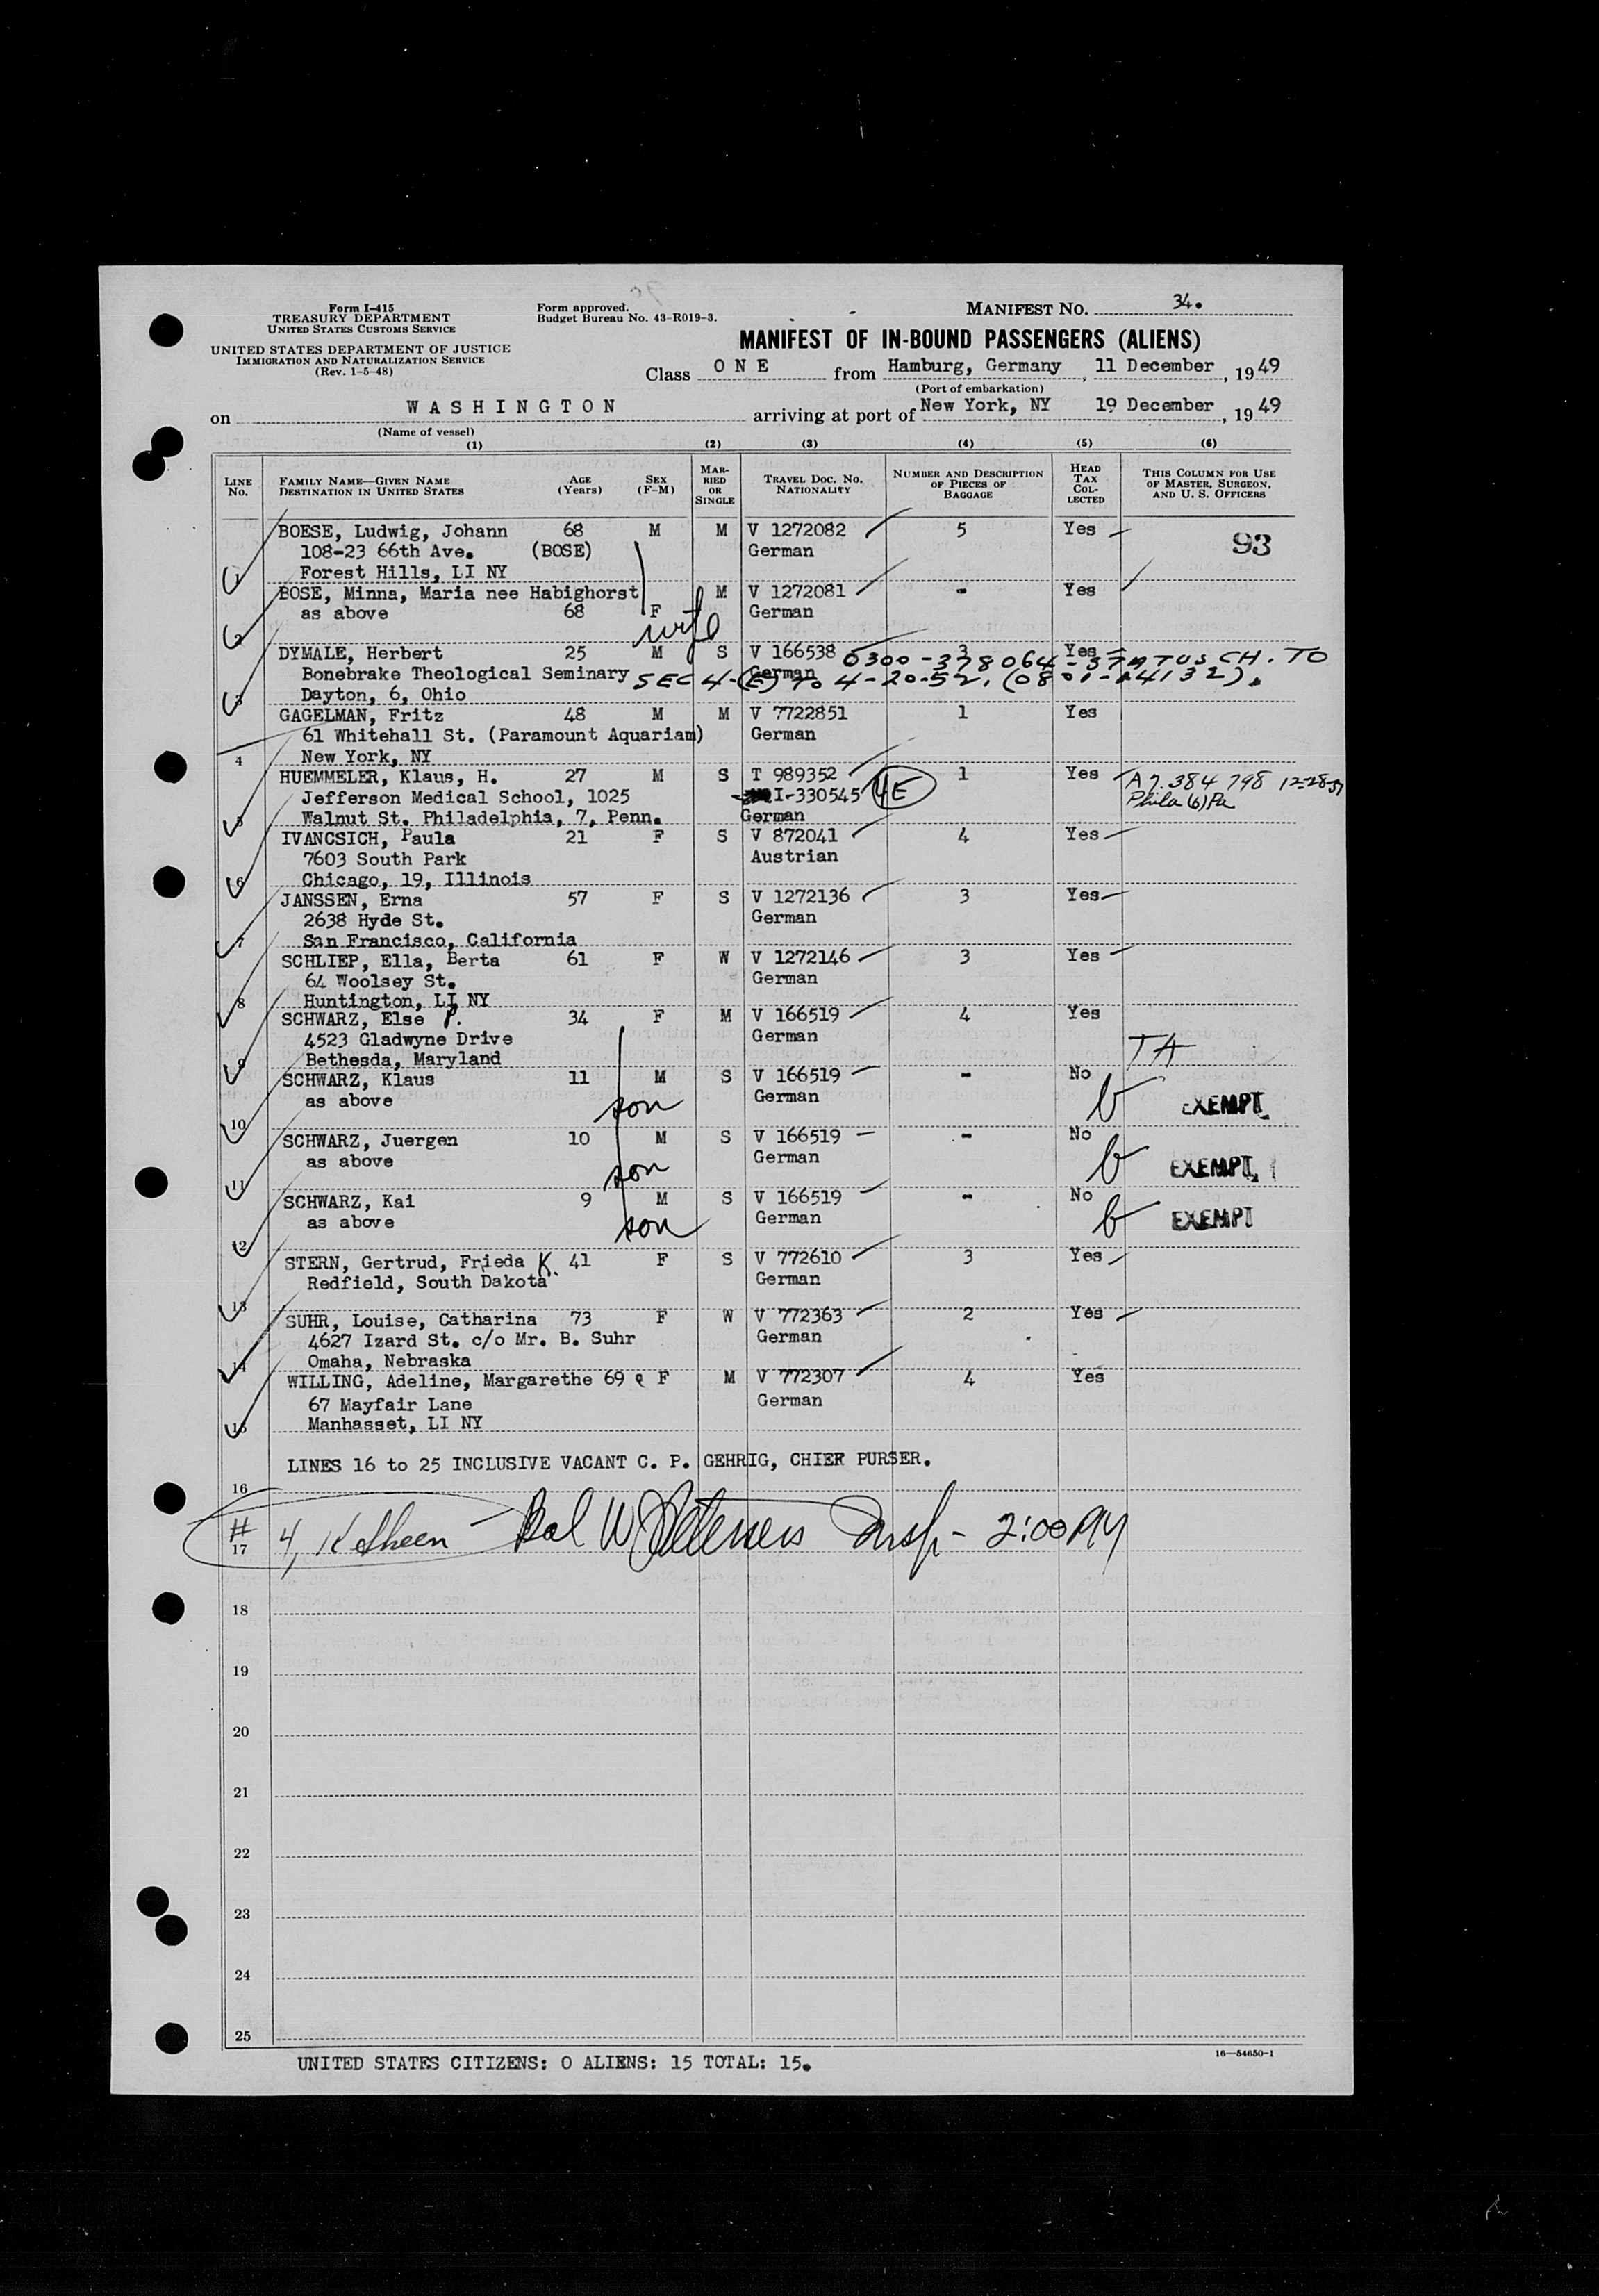 Form I-415
TREASURY DEPARTMENT
UNITED STATES CUSTOMS SERVICE
UNITED STATES DEPARTMENT OF JUSTICE
IMMIGRATION AND NATURALIZATION SERVICE
(Rev. 1-5-48)
Form approved.
Budget Bureau No. 43-R019-3.
MANIFEST NO. 34.
MANIFEST OF IN-BOUND PASSENGERS (ALIENS)
Class O N E from Hamburg, Germany, 11 December, 1949
(Port of embarkation)
on W A S H I N G T O N arriving at port of New York, NY 19 December, 1949
(Name of vessel)
(1) (2) (3) (4) (5) (6)
LINE No. FAMILY NAME—GIVEN NAME DESTINATION IN UNITED STATES AGE (Years) SEX (F-M) MARRIED OR SINGLE TRAVEL DOC. NO. NATIONALITY NUMBER AND DESCRIPTION OF PIECES OF BAGGAGE HEAD TAX COLLECTED THIS COLUMN FOR USE OF MASTER, SURGEON, AND U. S. OFFICERS
BOESE, Ludwig, Johann 68 M M V 1272082 5 Yes
108-23 66th Ave. (BOSE) German 93
1 Forest Hills, LI NY
BOSE, Minna, Maria nee Habighorst M V 1272081 - Yes
as above 68 F German
2 wife
DYMALE, Herbert 25 M S V 166538 3 Yes
0300-378064- STATUS CH. TO
Bonebrake Theological Seminary German
SEC 4-(E) TO 4-20-52. (0801-14132).
3 Dayton, 6, Ohio
GAGELMAN, Fritz 48 M M V 7722851 1 Yes
61 Whitehall St. (Paramount Aquariam) German
4 New York, NY
HUEMMELER, Klaus, H. 27 M S T 989352 1 Yes A7.384 798
Jefferson Medical School, 1025 I-330545 4E Phila (6) Pa
5 Walnut St. Philadelphia, 7, Penn. German
IVANCSICH, Paula 21 F S V 872041 4 Yes
7603 South Park Austrian
6 Chicago, 19, Illinois
JANSSEN, Erna 57 F S V 1272136 3 Yes
2638 Hyde St. German
7 San Francisco, California
SCHLIEP, Ella, Berta 61 F W V 1272146 3 Yes
64 Woolsey St. German
8 Huntington, LI NY
SCHWARZ, Else P. 34 F M V 166519 4 Yes
4523 Gladwyne Drive German
9 Bethesda, Maryland TA
SCHWARZ, Klaus 11 M S V 166519 - No
as above son German b EXEMPT
10
SCHWARZ, Juergen 10 M S V 166519 - No
as above son German b EXEMPT
11
SCHWARZ, Kai 9 M S V 166519 - No
as above son German b EXEMPT
12
STERN, Gertrud, Frieda K. 41 F S V 772610 3 Yes
Redfield, South Dakota German
13
SUHR, Louise, Catharina 73 F W V 772363 2 Yes
4627 Izard St. c/o Mr. B. Suhr German
14 Omaha, Nebraska
WILLING, Adeline, Margarethe 69 F M V 772307 4 Yes
67 Mayfair Lane German
15 Manhasset, LI NY
LINES 16 to 25 INCLUSIVE VACANT C. P. GEHRIG, CHIEF PURSER.
16
17 # 4, Insp - 2:00 PM
18
19
20
21
22
23
24
25
UNITED STATES CITIZENS: 0 ALIENS: 15 TOTAL: 15.
16—54650-1